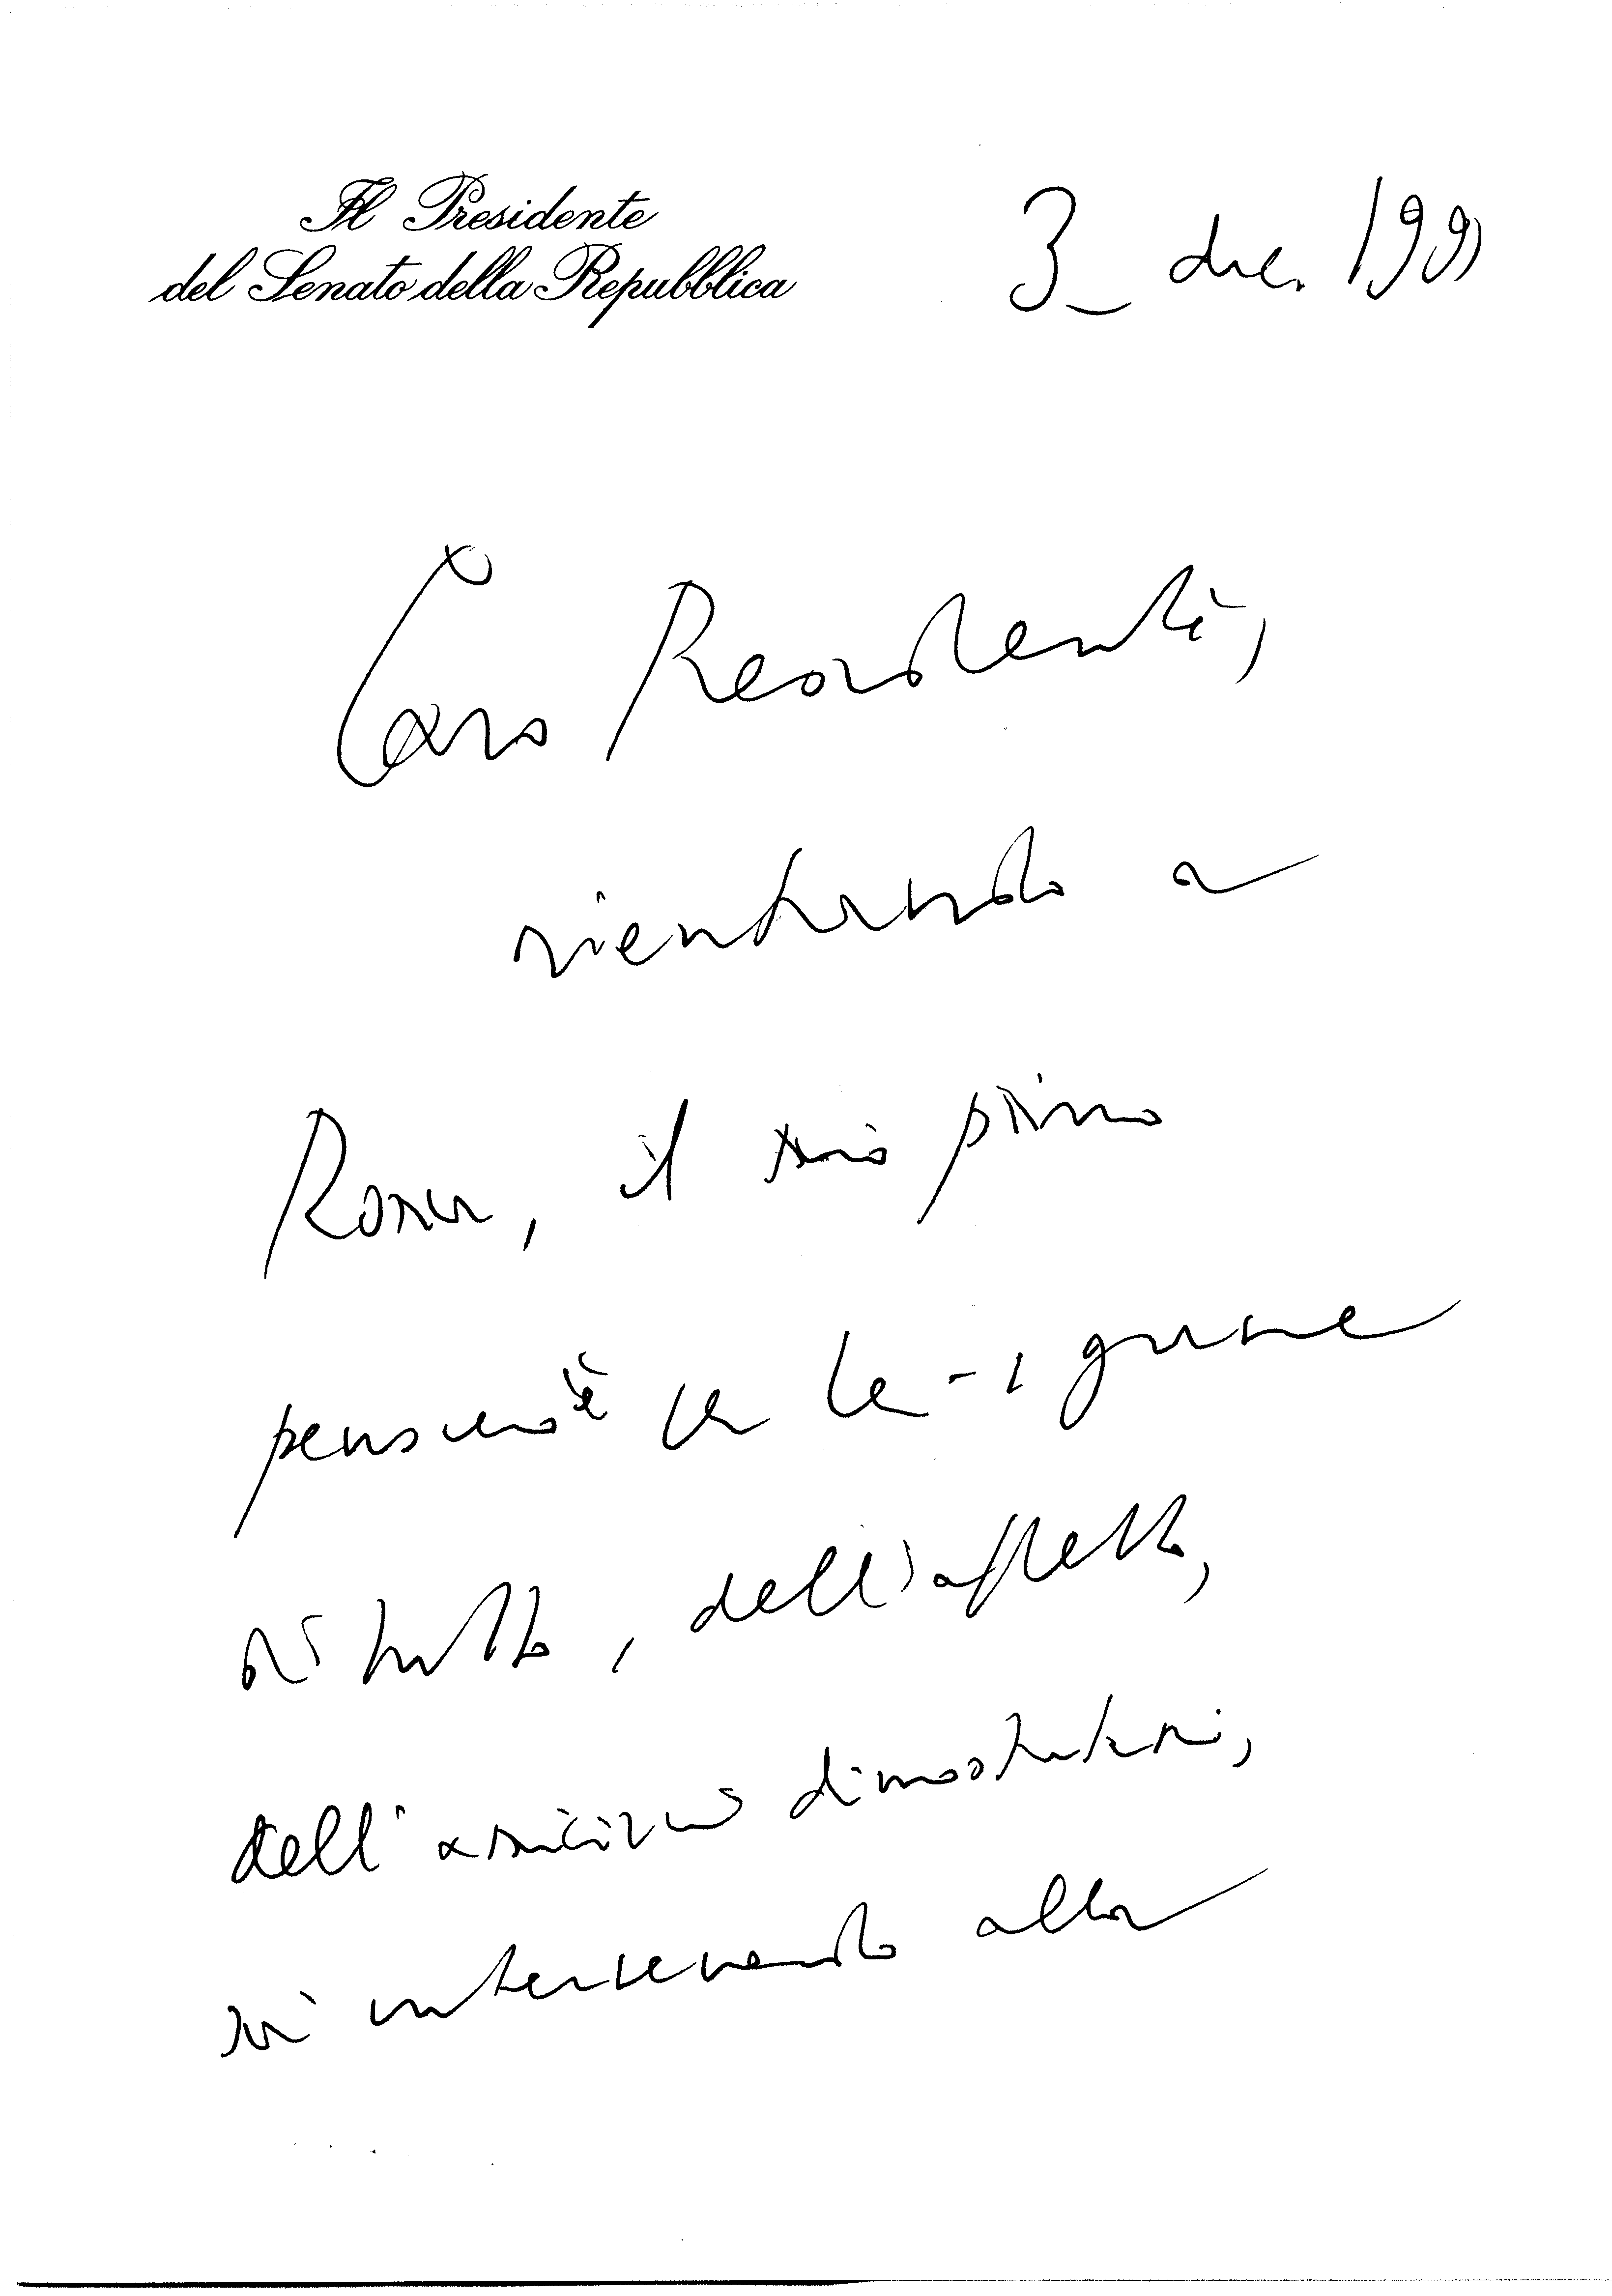 Il Presidente
del Senato della Repubblica
3 dic. 1991
Caro Presidente,
rientrando a
Roma, il mio primo
pensiero è per Lei
di tutto, dell'affetto,
dell'amicizia dimostratami,
intervenendo alla